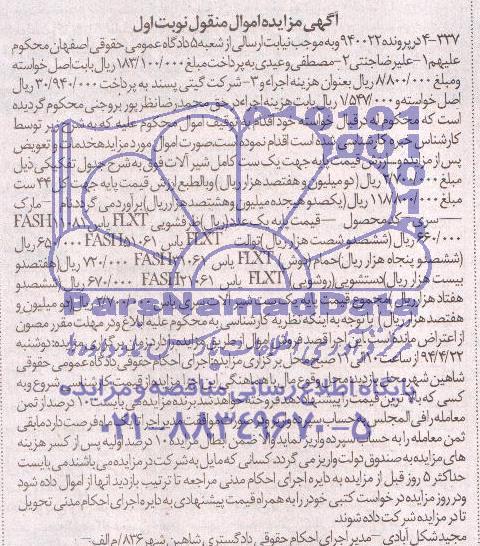 آگهی مزایده اموال منقول نوبت اول
۴-۳۳۷ در پرونده ۹۴۰۰۲۲ و به موجب نیابت ارسالی از شعبه ۵ دادگاه عمومی حقوقی اصفهان محکوم
علیهم ۱-علیرضا جنتی ۲-مصطفی وعیدی به پرداخت مبلغ ۱۸۳/۱۰۰/۰۰۰ ریال بابت اصل خواسته
و مبلغ ۸/۸۰۰/۰۰۰ ریال بعنوان هزینه اجراء و ۳-شرکت گیتی پسند به پرداخت ۳۰/۹۴۰/۰۰۰ ریال
اصل خواسته و ۱/۵۴۷/۰۰۰ ریال بابت هزینه اجراء در حق محمدرضا نظرپور بروجنی محکوم گردیده
است که محکوم له در قبال خواسته خود اقدام به توقیف اموال محکوم علیه که به شرح زیر توسط
کارشناس خبره کارشناسی شده است اقدام نموده است صورت اموال مورد مزایده خدمات و تعویض
پس از مزایده و ارزش قیمت پایه جهت یک ست کامل شیر آلات فوق به شرح جدول تفکیکی ذیل
مبلغ ۲/۷۰۰/۰۰۰ ریال (دو میلیون و هفتصد هزار ریال) و بالطبع ارزش قیمت پایه جهت کل ۴۴ ست
مبلغ ۱۱۸/۸۰۰/۰۰۰ ریال (یکصد و هجده میلیون و هشتصد هزار ریال) برآورد می گردد نام – مارک
– سری – کد محصول – قیمت پایه یک عدد (ریال) ظرفشویی FLXT یاس FASH۱۱۰۸۱
۶۶۰/۰۰۰ ریال (ششصد و شصت هزار ریال) توالت FLXT یاس FASH۵۱۰۶۱ ۶۵۰/۰۰۰ ریال
(ششصد و پنجاه هزار ریال) حمام (دوش) FLXT یاس FASH۳۱۰۶۱ ۷۲۰/۰۰۰ ریال (هفتصد و
بیست هزار ریال) دستشویی (روشویی) FLXT یاس FASH۲۱۰۶۱ ۶۷۰/۰۰۰ ریال (ششصد و
هفتاد هزار ریال) مجموع قیمت پایه یک ست شیر آلات سری یاس ۲/۷۰۰/۰۰۰ ریال (دو میلیون و
هفتصد هزار ریال) با توجه به اینکه نظریه کارشناسی به محکوم علیه ابلاغ و در مهلت مقرر مصون
از اعتراض مانده است این اجرا قصد فروش اموال از طریق مزایده را دارد در روز دوشنبه
۹۴/۴/۲۲ از ساعت محل برگزاری مزایده اجرای احکام حقوقی دادگاه عمومی حقوقی
شاهین شهر شروع و به
کسی که بالاترین قیمت را پیشنهاد دهد فروخته خواهد شد برنده مزایده می بایست ۱۰ درصد از ثمن
معامله را فی المجلس به حساب سپرده فرصت دارد مابقی
ثمن معامله را به حساب سپرده واریز نماید والا ضمن ابطال مزایده ۱۰ درصد اولیه پس از کسر هزینه
های مزایده به صندوق دولت واریز می گردد کسانی که مایل به شرکت در مزایده می باشند می بایست
حداکثر ۵ روز قبل از مزایده به دایره اجرای احکام مدنی مراجعه تا ترتیب بازدید آنها از اموال داده شود
و در روز مزایده درخواست کتبی خود را به همراه قیمت پیشنهادی به دایره اجرای احکام مدنی تحویل
تا در مزایده شرکت داده شوند
مجید شکل آبادی – مدیر اجرای احکام حقوقی دادگستری شاهین شهر ۸۳۶/م الف–
ParsNamadData
پایگاه اطلاع رسانی مناقصه و مزایده
۰۲۱-۸۸۳۴۹۶۷۰-۵